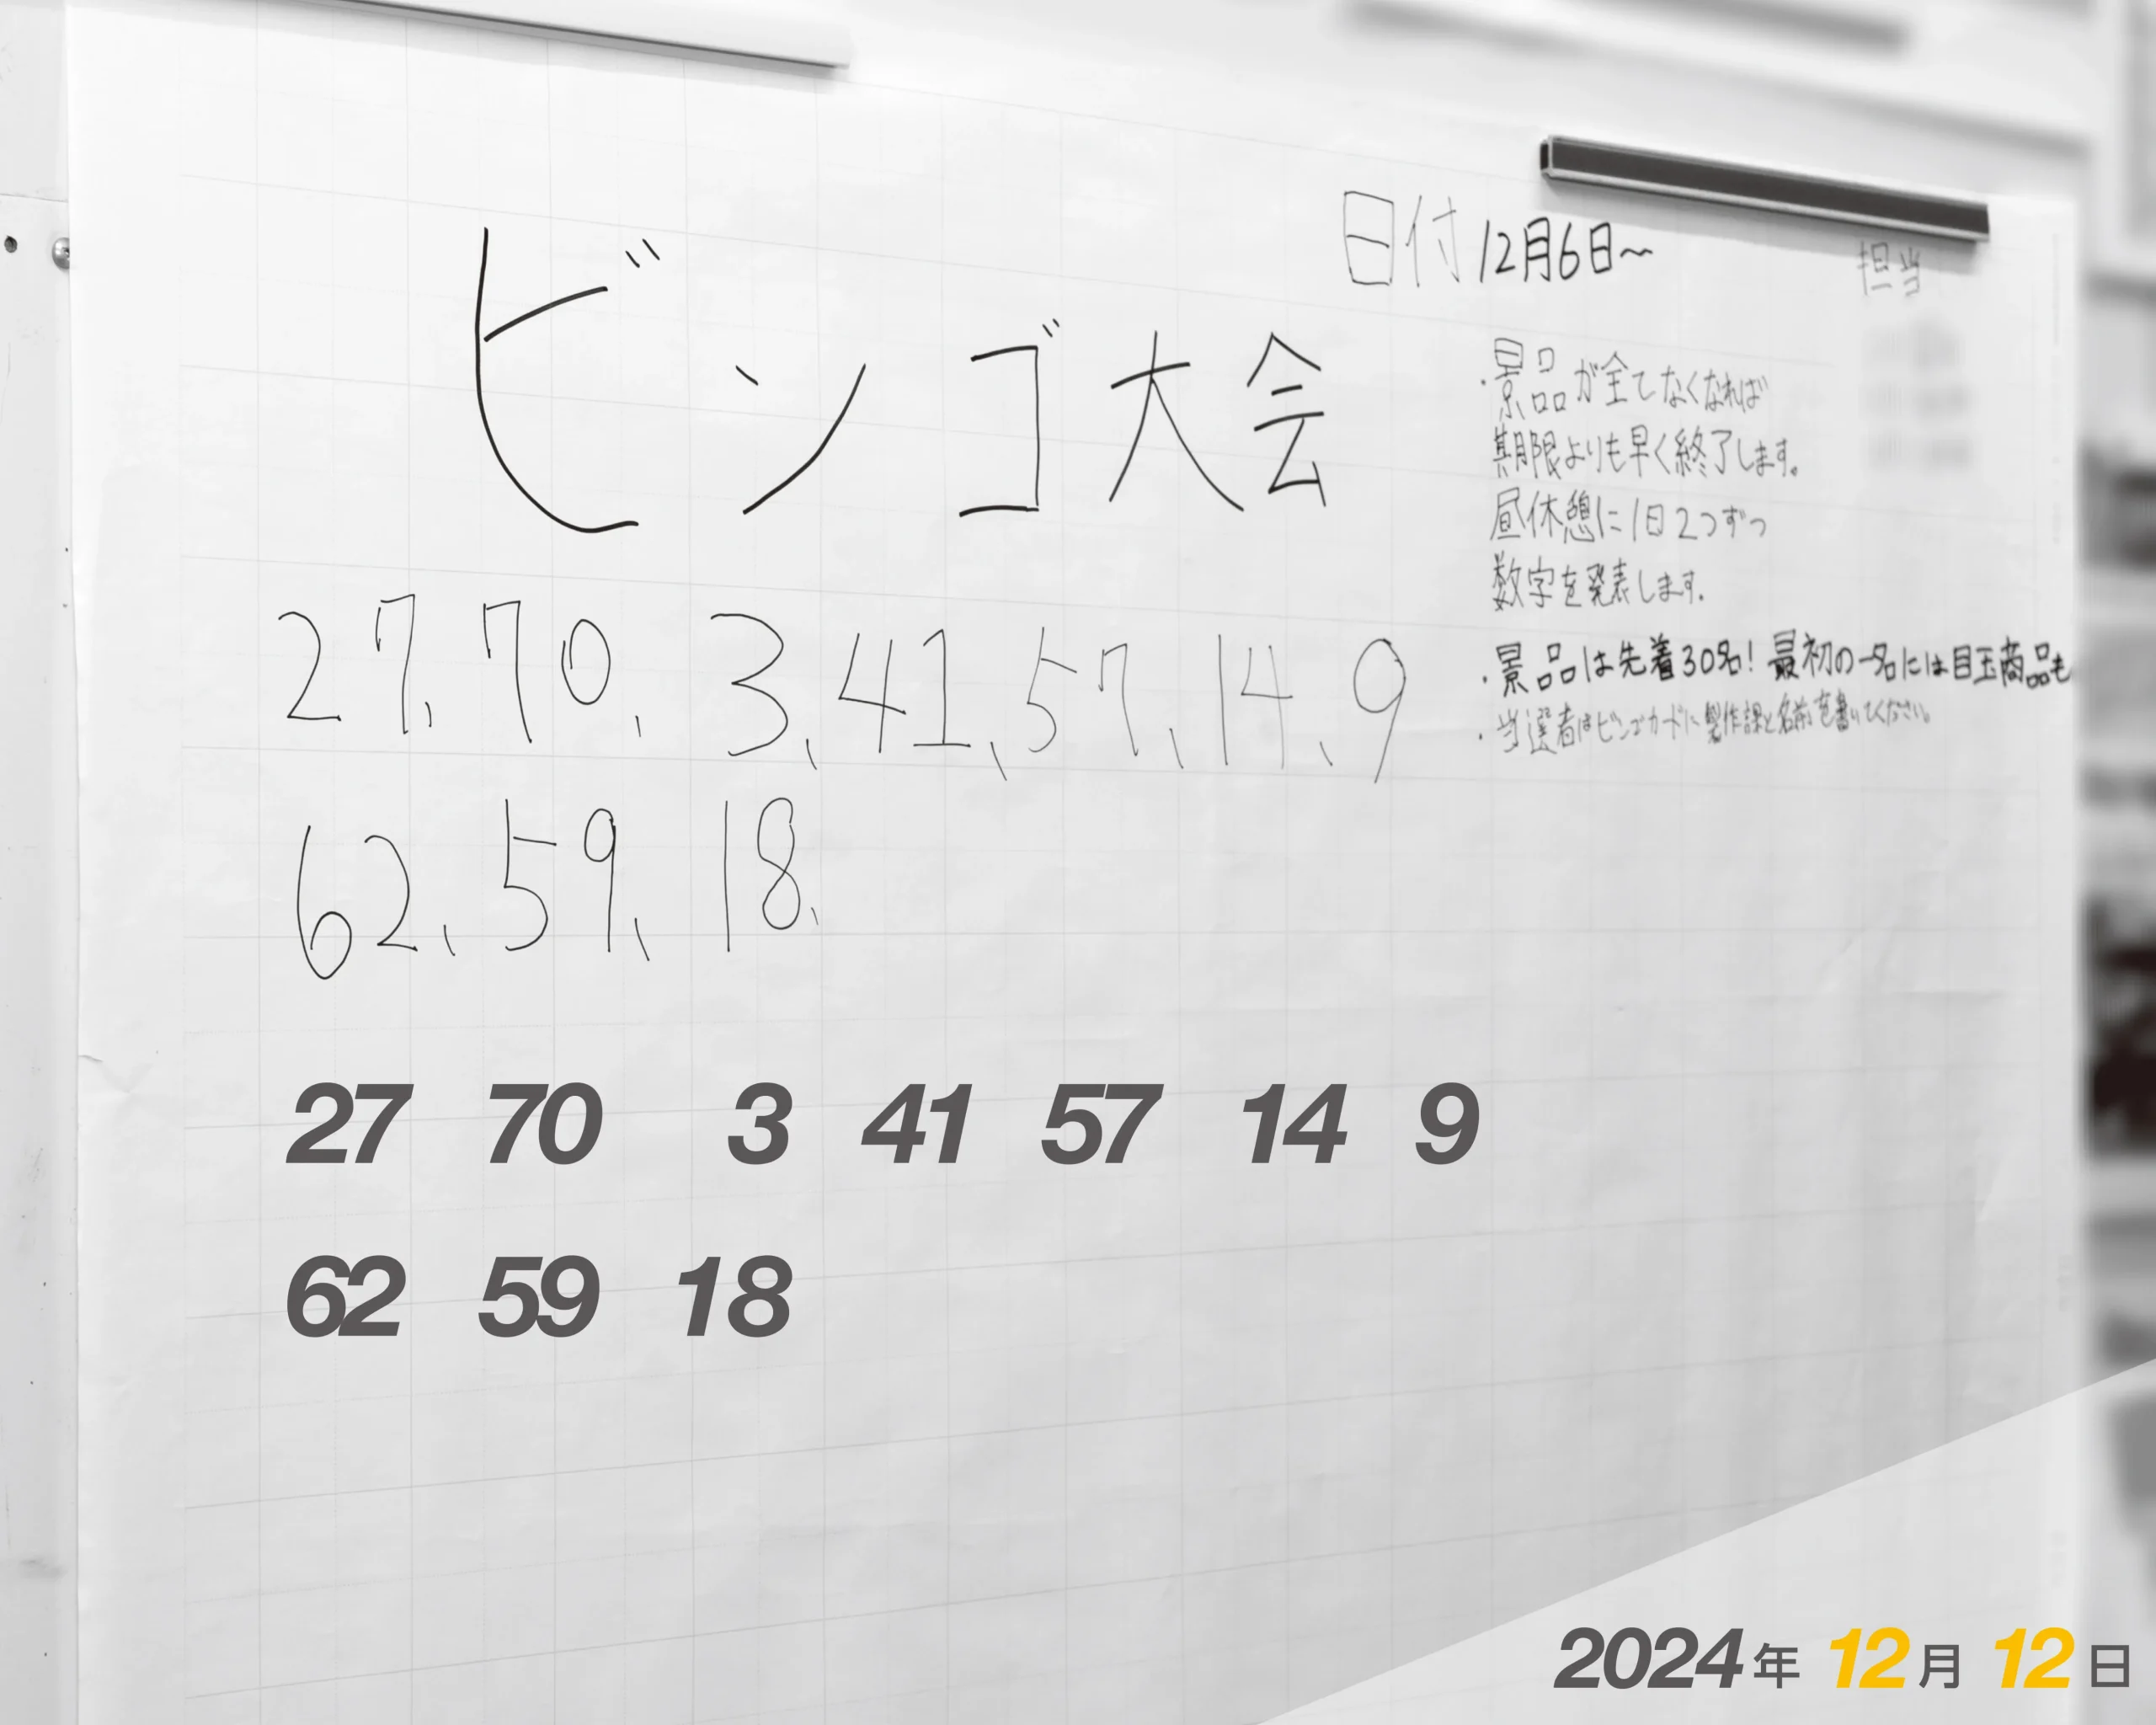 ビンゴ大会
日付 12月6日〜
担当
・景品が全てなくなれば
期限よりも早く終了します。
昼休憩に1日2つずつ
数字を発表します。
・景品は先着30名！最初の一名には目玉商品も
・当選者はビンゴカードに製作課と名前を書いてください。
27、70、3、41、57、14、9
62、59、18、
27 70 3 41 57 14 9
62 59 18
2024年 12月 12日